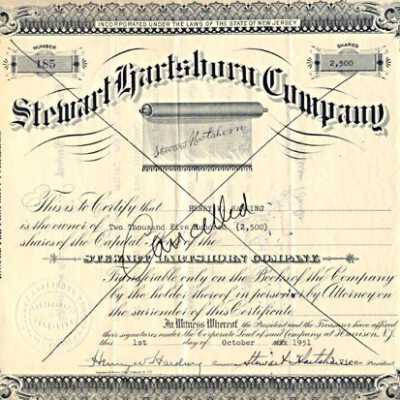 INCORPORATED UNDER THE LAWS OF THE STATE OF NEW JERSEY
NUMBER
185
SHARES
2,500
Stewart Hartshorn Company
Stewart Hartshorn
This is to Certify that HENRY W. HARDING
is the owner of Two Thousand Five Hundred (2,500)
shares of the Capital Stock of the
Cancelled
STEWART HARTSHORN COMPANY.
Transferable only on the Books of the Company
by the holder thereof in person or by Attorney on
the surrender of this Certificate
In Witness Whereof the President and the Treasurer have affixed
their signatures under the Corporate Seal of said Company at Harrison, N.J.
this 1st day of October 1951
Henry W Harding
Stewart Hartshorn
President